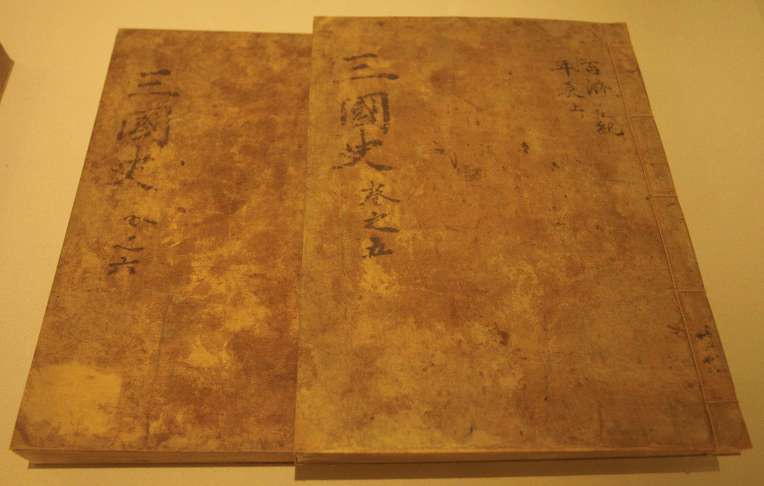 百濟 紀
年表上
三國史 卷之五
三國史 卷之六